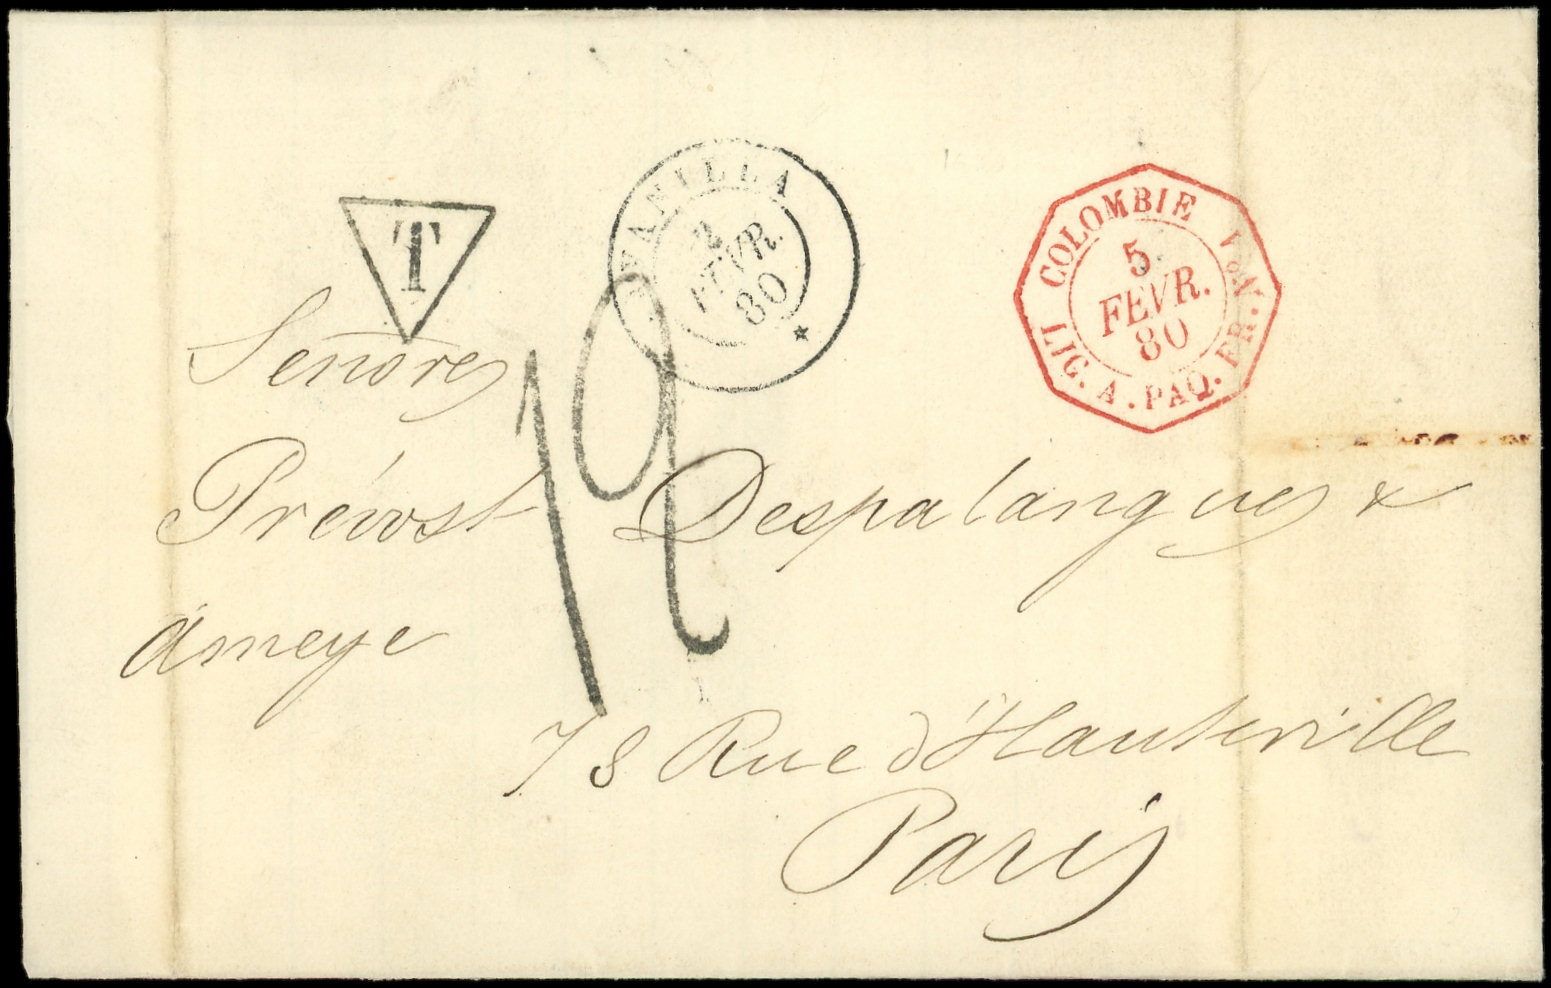 T
SAVANILLA
2
FEVR.
80
COLOMBIE V.ON
5
FEVR.
80
LIG. A. PAQ. FR.
Señores
12
Prévost Despalangues &
Ameye
78 Rue d'Hauteville
Paris